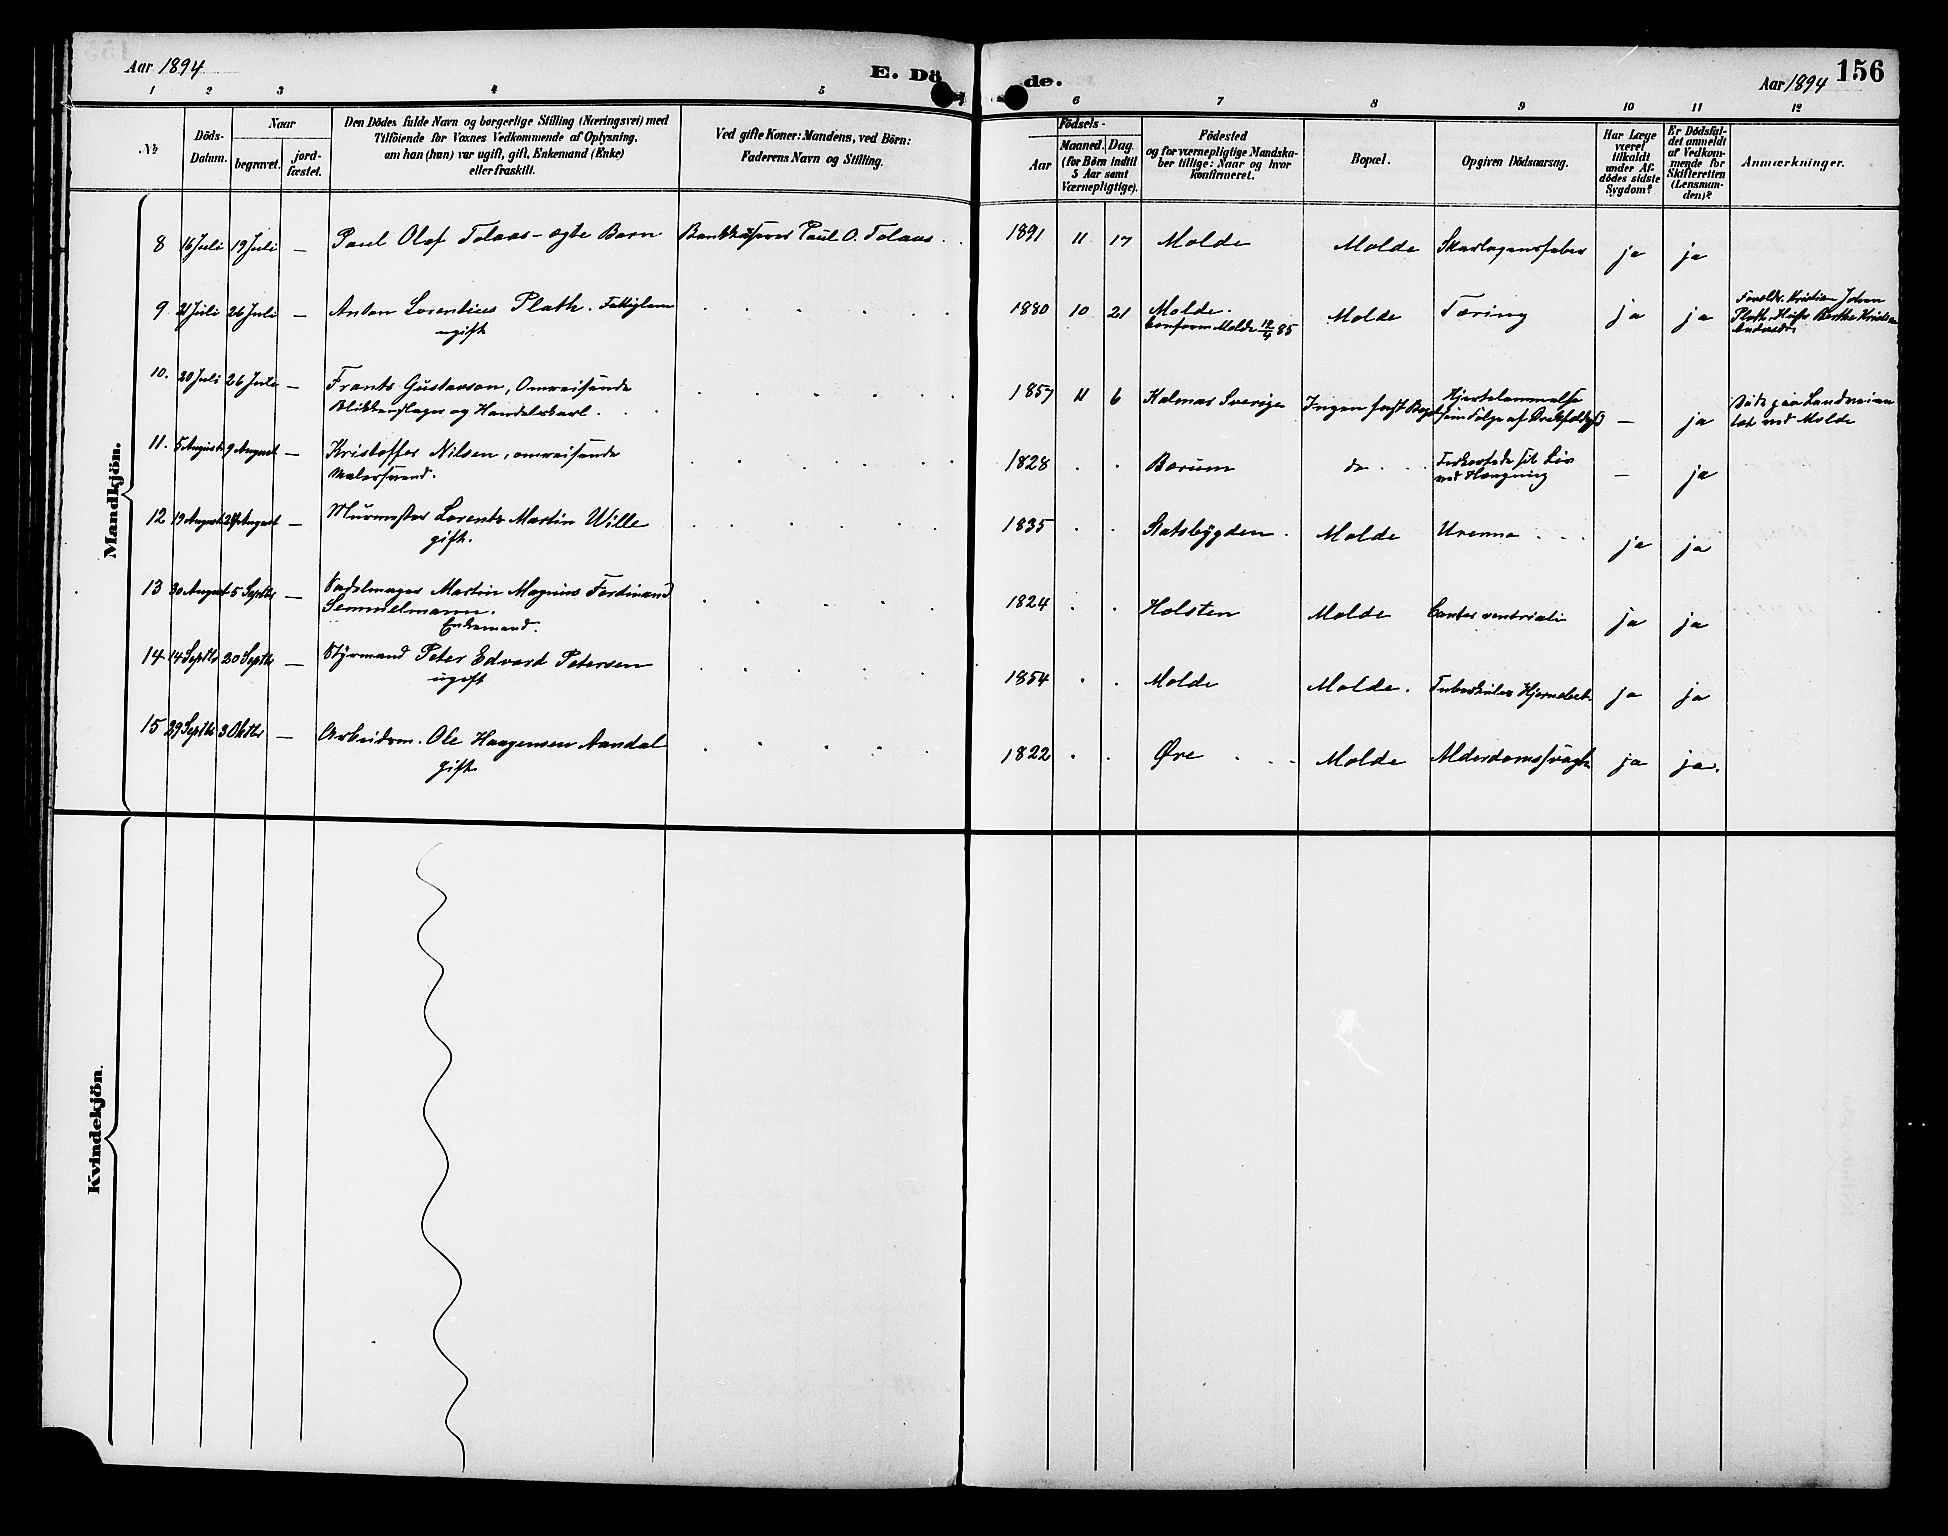 Aar 1894
E. Dö
de.
Aar 1894
156
1 2 3 4 5 6 7 8 9 10 11 12
№
Döds-
Datum.
Naar
begravet.
jord-
fæstet.
Den Dödes fulde Navn og borgerlige Stilling (Næringsvei) med
Tilföiende for Voxnes Vedkommende af Oplysning,
om han (hun) var ugift, gift, Enkemand (Enke)
eller fraskilt.
Ved gifte Koner: Mandens, ved Börn:
Faderens Navn og Stilling.
Födsels-
Aar
Maaned. Dag.
(for Börn indtil
5 Aar samt
Værnepligtige).
Födested
og for værnepligtige Mandska-
ber tillige: Naar og hvor
konfirmeret.
Bopæl.
Opgiven Dödsaarsag.
Har Læge
været
tilkaldt
under Af-
dödes sidste
Sygdom?
Er Dödsfal-
det anmeldt
af Vedkom-
mende for
Skifteretten
(Lensman-
den)?
Anmærkninger.
Mandkjön.
8 16 Juli 19 Juli — Paul Olaf Tolaas - ægte Barn Paul O. Tolaas. 1891 11 17 Molde Molde Skarlagensfeber ja ja
9 21 Juli 26 Juli — Anton Lorentius Plath. Fattiglem 1880 10 21 Molde. Molde Tæring ja ja Kristian Johan
ugift Confirm Molde 12/4 85 Plath Berthe
10. 20 Juli 26 Juli — Frants Gustavson, Omreisende 1857 11 6 Kalmar Sverige Ingen fast Bopæl Hjertelammelse — ja Död paa Landeveien
Blikkenslager og Handelskarl. som Følge af ved Molde
11. 5 August 9 August — Kristoffer Nilsen, omreisende 1828 Bærum do — ja
Malersvend. ved Hængning
12 19 August 24 August — Murmester Lorents Martin Wille 1835 Statsbygden Molde Uremia ja ja
gift.
13 30 August 5 Septbr — Sadelmager Martin Magnus Ferdinand 1824 Holsten Molde Cancer ventriculi ja ja
Semmelmann.
Enkemand.
14 14 Septbr 20 Septbr — Styrmand Peter Edvard Petersen 1854 Molde Molde. ja ja
ugift
15 29 Septbr 3 Oktbr — Arbeidsm. Ole Haagensen Aandal 1822 Øre Molde Alderdomssvagh. ja ja.
gift
Kvindekjön.